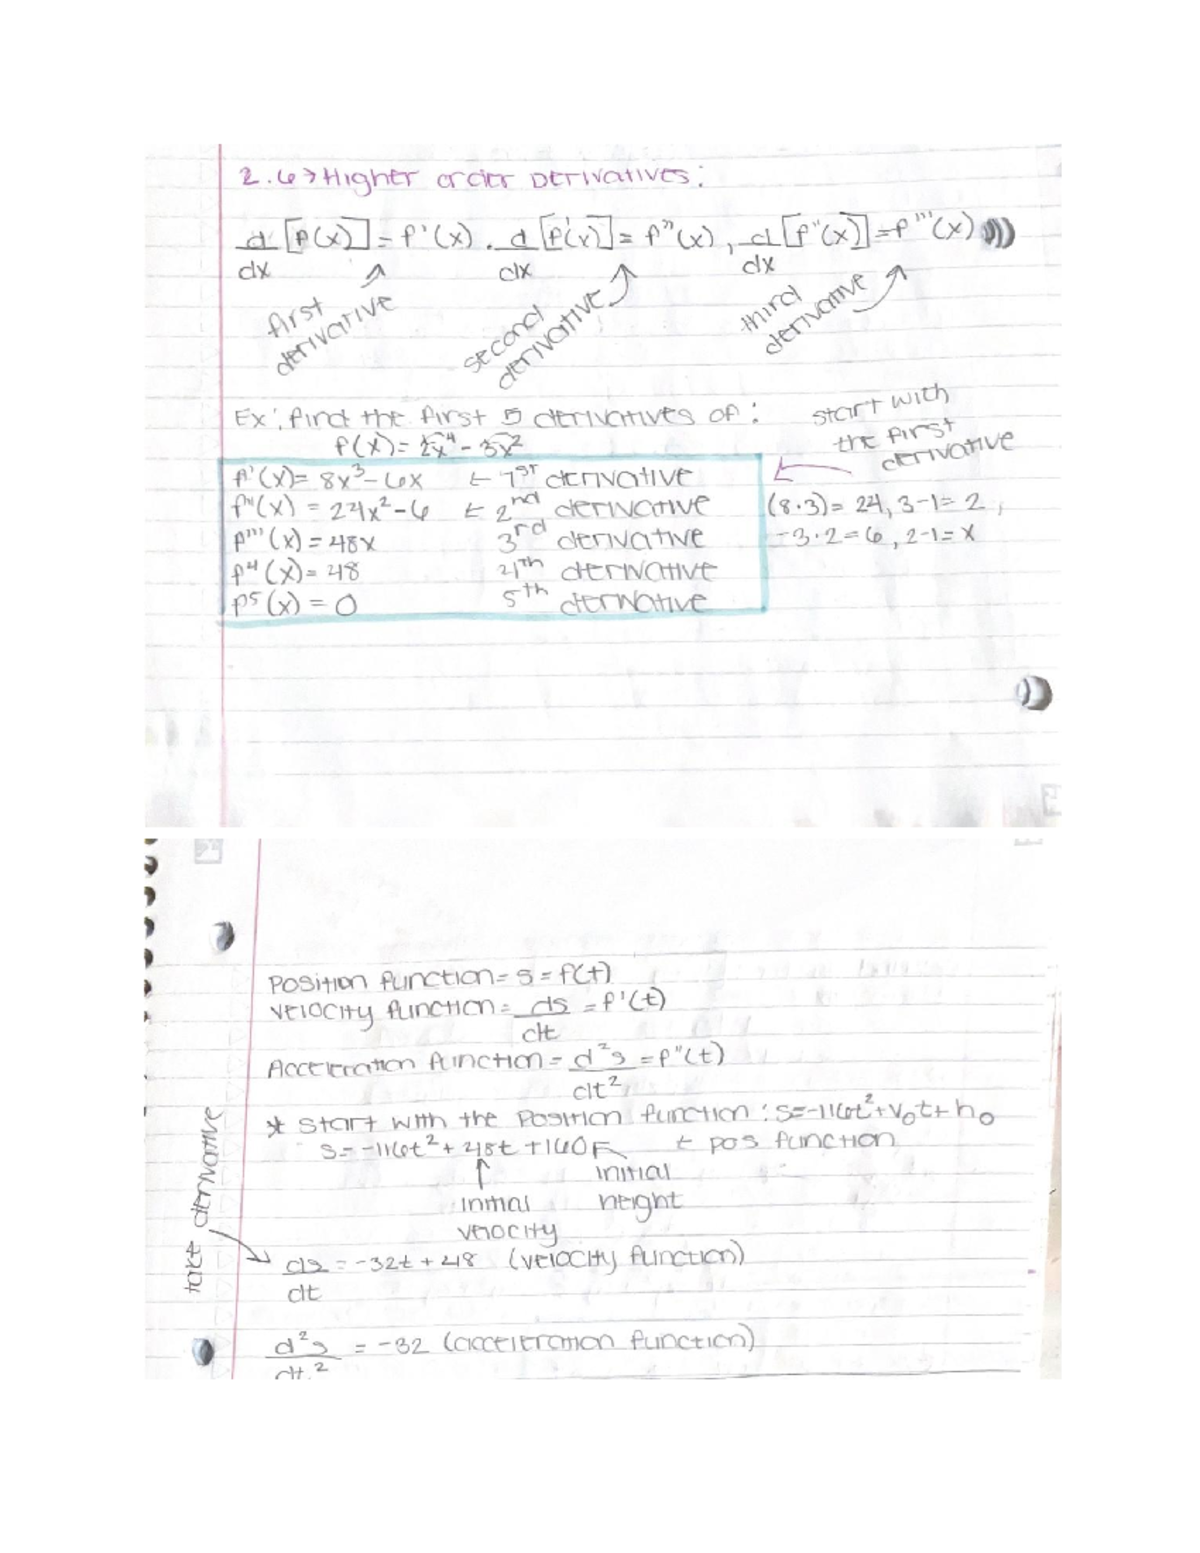 2.6 → Higher order Derivatives:
d/dx [f(x)] = f'(x). d/dx [f'(x)] = f''(x), d/dx [f''(x)] = f'''(x)
first derivative
second derivative
third derivative
Ex: find the first 5 derivatives of:
f(x) = 2x⁴ - 3x²
start with
the first
derivative
f'(x) = 8x³ - 6x ← 1st derivative
f''(x) = 24x² - 6 ← 2nd derivative
(8·3) = 24, 3-1 = 2,
f'''(x) = 48x 3rd derivative
-3·2 = 6, 2-1 = x
f⁴(x) = 48 4th derivative
f⁵(x) = 0 5th derivative
Position function = s = f(t)
Velocity function = ds/dt = f'(t)
Acceleration function = d²s/dt² = f''(t)
* Start with the Position function: s = -16t² + v₀t + h₀
s = -16t² + 48t + 160 ← pos function
initial
height
initial
velocity
take derivative
ds/dt = -32t + 48 (velocity function)
d²s/dt² = -32 (acceleration function)